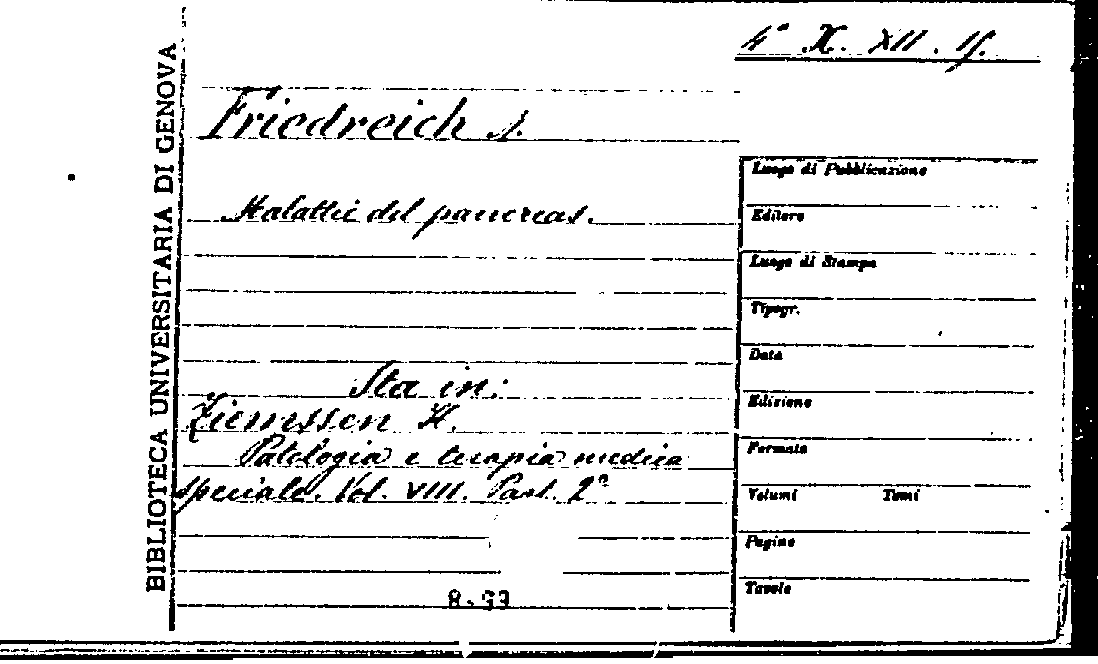 4ª X. XII. 15.
BIBLIOTECA UNIVERSITARIA DI GENOVA
Friedreich N.
Malattie del pancreas.
Sta in:
Ziemssen H.
Patologia e terapia medica
speciale. Vol. VIII. Part. 2ª
Luogo di Pubblicazione
Editore
Luogo di Stampa
Tipogr.
Data
Edizione
Formato
Volumi Tomi
Pagine
Tavole